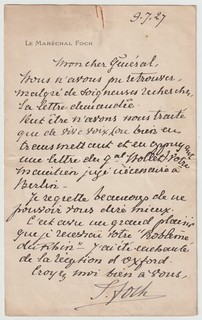 9.7.27
LE MARÉCHAL FOCH
Mon cher Général,
Nous n'avons pu retrouver,
malgré de soigneuses recherches,
la lettre demandée.
Peut être n'avons nous traité
que de vive voix, ou bien en
transmettant et en appuyant
une lettre du gal Nollet votre
maintien jugé nécessaire à
Berlin.
Je regrette beaucoup de ne
pouvoir vous dire mieux.
C'est avec un grand plaisir
que je recevrai votre "Problème
du Rhin". J'ai été enchanté
de la réception d'Oxford.
Croyez moi bien à vous,
F. Foch